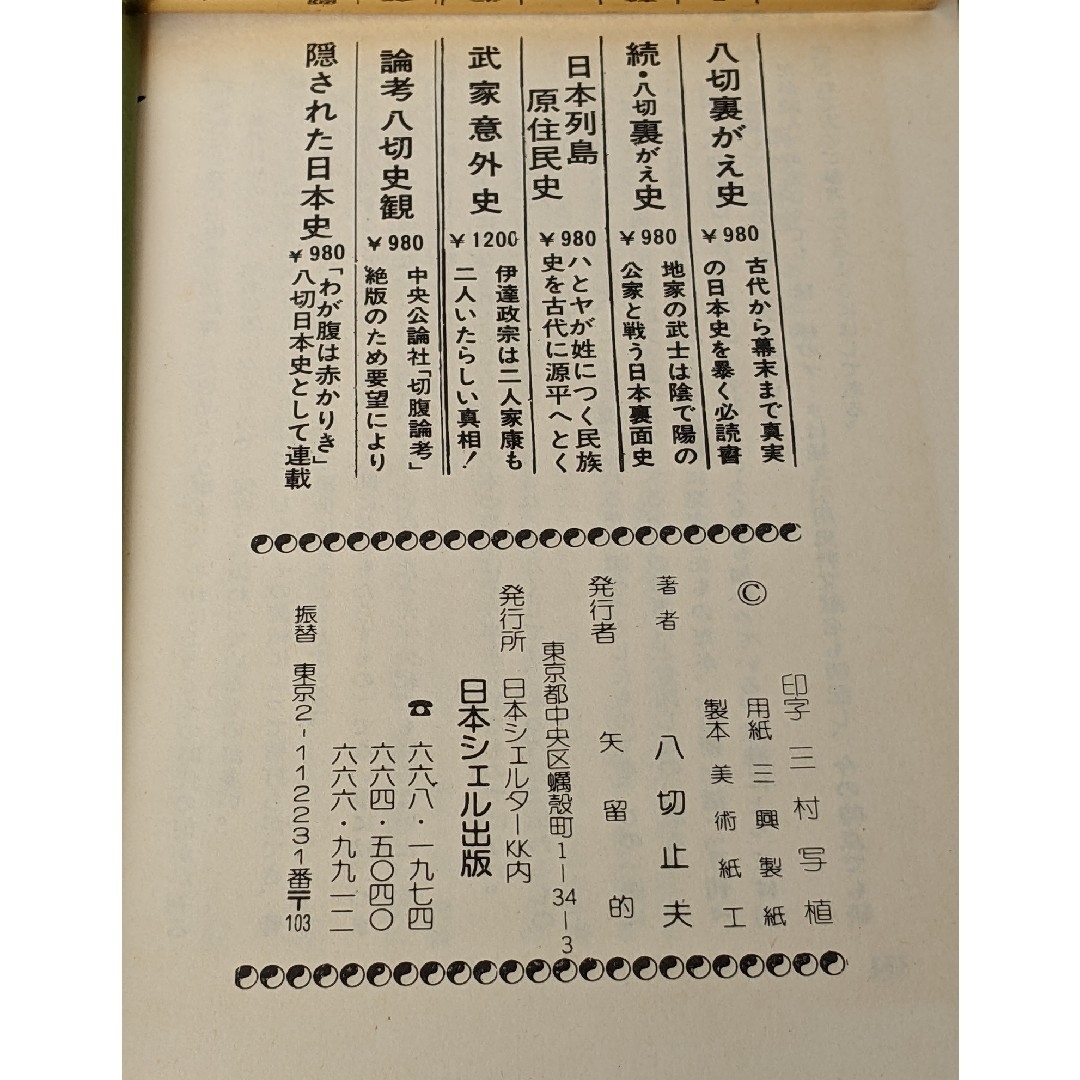 八切裏がえ史
¥980
古代から幕末まで真実
の日本史を暴く必読書
続・八切裏がえ史
¥980
地家の武士は陰で陽の
公家と戦う日本裏面史
日本列島
原住民史
¥980
ハとヤが姓につく民族
史を古代に源平へとく
武家意外史
¥1200
伊達政宗は二人家康も
二人いたらしい真相!
論考八切史観
¥980
中央公論社「切腹論考」
絶版のため要望により
隠された日本史
¥980
「わが腹は赤かりき」
八切日本史として連載
印字 三村写植
用紙 三興製紙
製本 美術紙工
©
著者 八切止夫
発行者 矢留的
東京都中央区蠣殻町1-34-3
発行所 日本シェルターKK内
日本シェル出版
☎ 六六八・一九七四
六六四・五〇四〇
六六六・九九一二
振替 東京2-112231番〒103